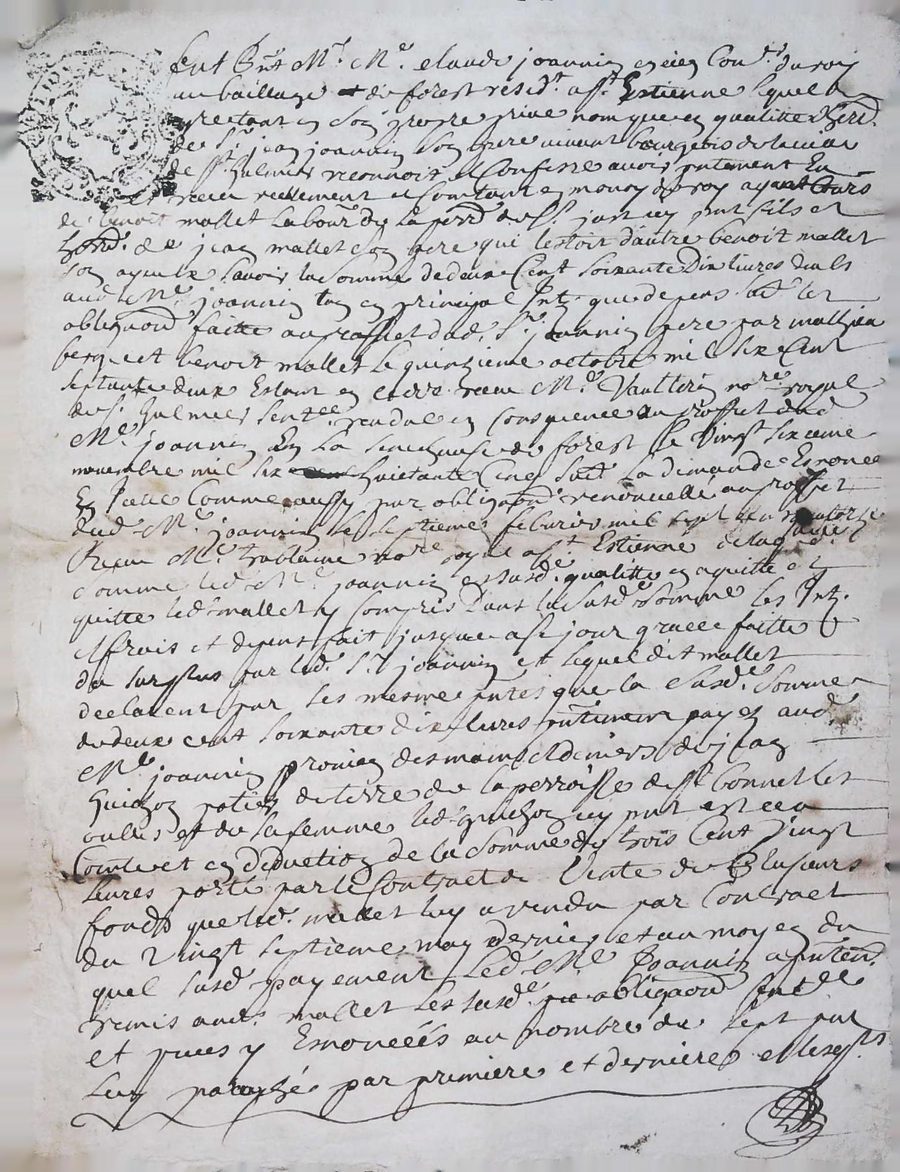 fut pnt Mr Me Claude joannin ancien Conr du roy
au bailliage de forest residt a st Estienne lequel
en son propre prive nom que en qualitte
de sr jean joannin son pere vivant bourgeois de la ville
de st Galmier reconnoit et Confesse avoir
receu reellement et Contant en monoy de roy ayant Cours
de benoit mallet Labour de la perr de st just icy pnt fils et
de jean mallet son pere qui lestoit dautre benoit mallet
son ayeul savoir la somme de deux Cent soixante Dix livres
aud Me joannin tan en principal Intz que depens
obligaon faitte au proffit dud sr joannin pere par mathieu
et benoit mallet le quinzieme octobre mil six Cent
septante deux Estant en receu Me Vaultier nore royal
de st Galmier sentce rendue en Consequence au proffit dud
Me joannin En la senechausé de forest le Vingt six eme
novembre mil six huictante Cinq la dimande Enoncé
En Icelle Comme aussy par obligaon renouvellé au proffit
dud Me joannin le septieme febvrier mil sept
Receu Me nore royal a st Estienne
Comme led Me joannin en susde qualitte en aquitte et
quitte led mallet y Compris dans la susde somme les Intz
et frais et depens fait jusque a ce jour grace faitte
du surplus par led sr joannin et lequel dit mallet
declarent par les mesme pntes que la susde somme
de deux cent soixante dix livres pntement payez aud
Me joannin provien des mains et deniers de jean
Guichon potier de terre de la perroisse de st bonnet les
oulles et de sa femme led guichon icy pnt
Comte et en deduction de la somme de trois Cent Vingt
livres porté par le Contract de Vente de Plusieurs
fonds que led mallet luy a vendu par Contract
du Vingt septieme may dernier et au moyen du
quel susd payement led Me Joannin a pnten
remis aud mallet les susd obligaon
et pieces y Enonceés au nombre de sept par
luy paraphé par premiere et derniere